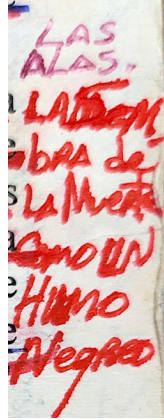 LAS
ALAS.
LA SOM
bRA de
LA Muerte
Como UN
HUMO
Negreo